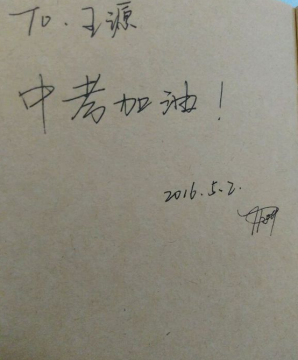 To. 王源
中考加油！
2016.5.2.